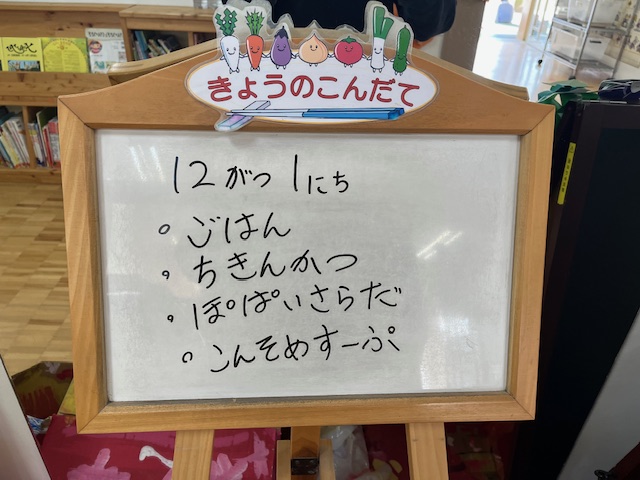 きょうのこんだて
12がつ1にち
。ごはん
。ちきんかつ
。ぽぱいさらだ
。こんそめすーぷ